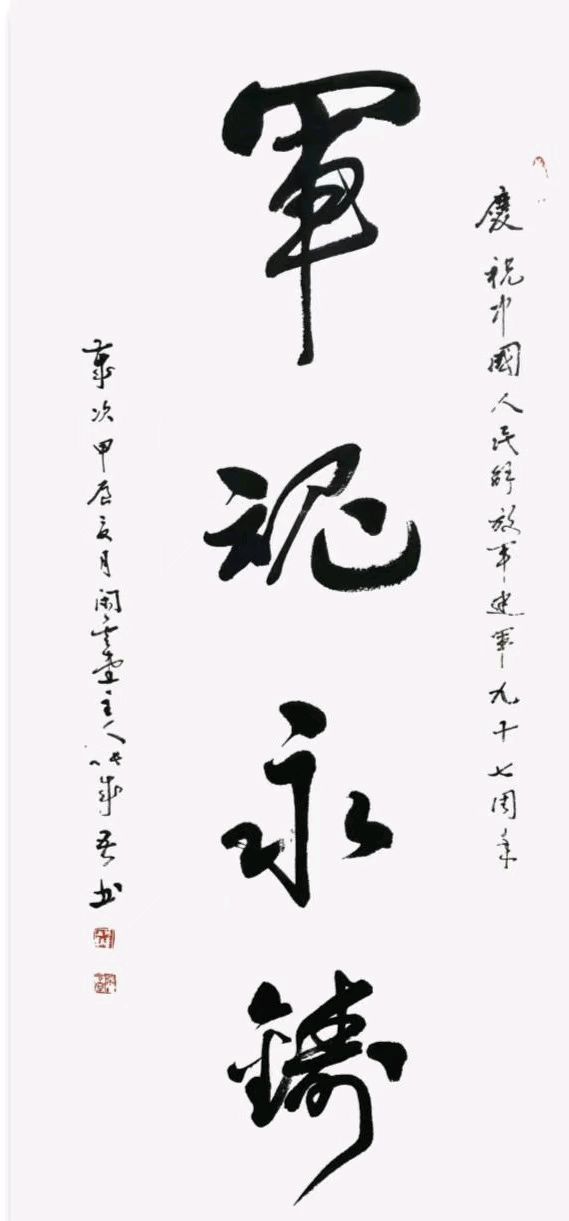 慶祝中國人民解放军建軍九十七周年
軍魂永鑄
歲次甲辰夏月閑雲堂主人
书